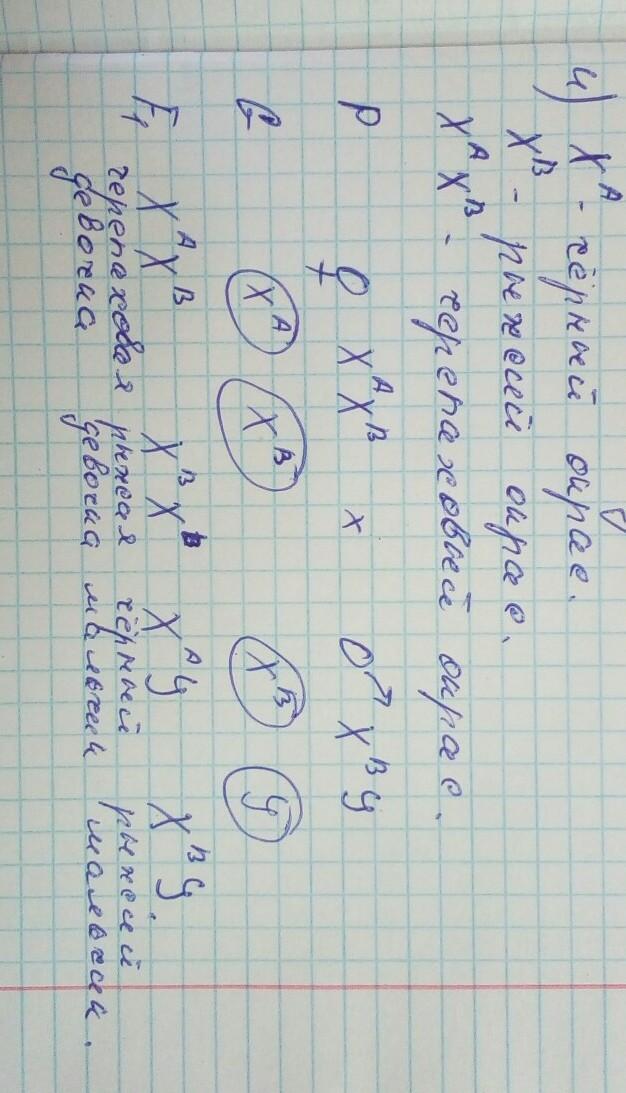 4) X^A - чёрный окрас.
X^B - рыжий окрас.
X^A X^B - черепаховый окрас.
P ♀ X^A X^B x ♂ X^B y
G X^A X^B X^B y
F₁ X^A X^B X^B X^B X^A y X^B y
черепаховая рыжая чёрный рыжий
девочка девочка мальчик мальчик.